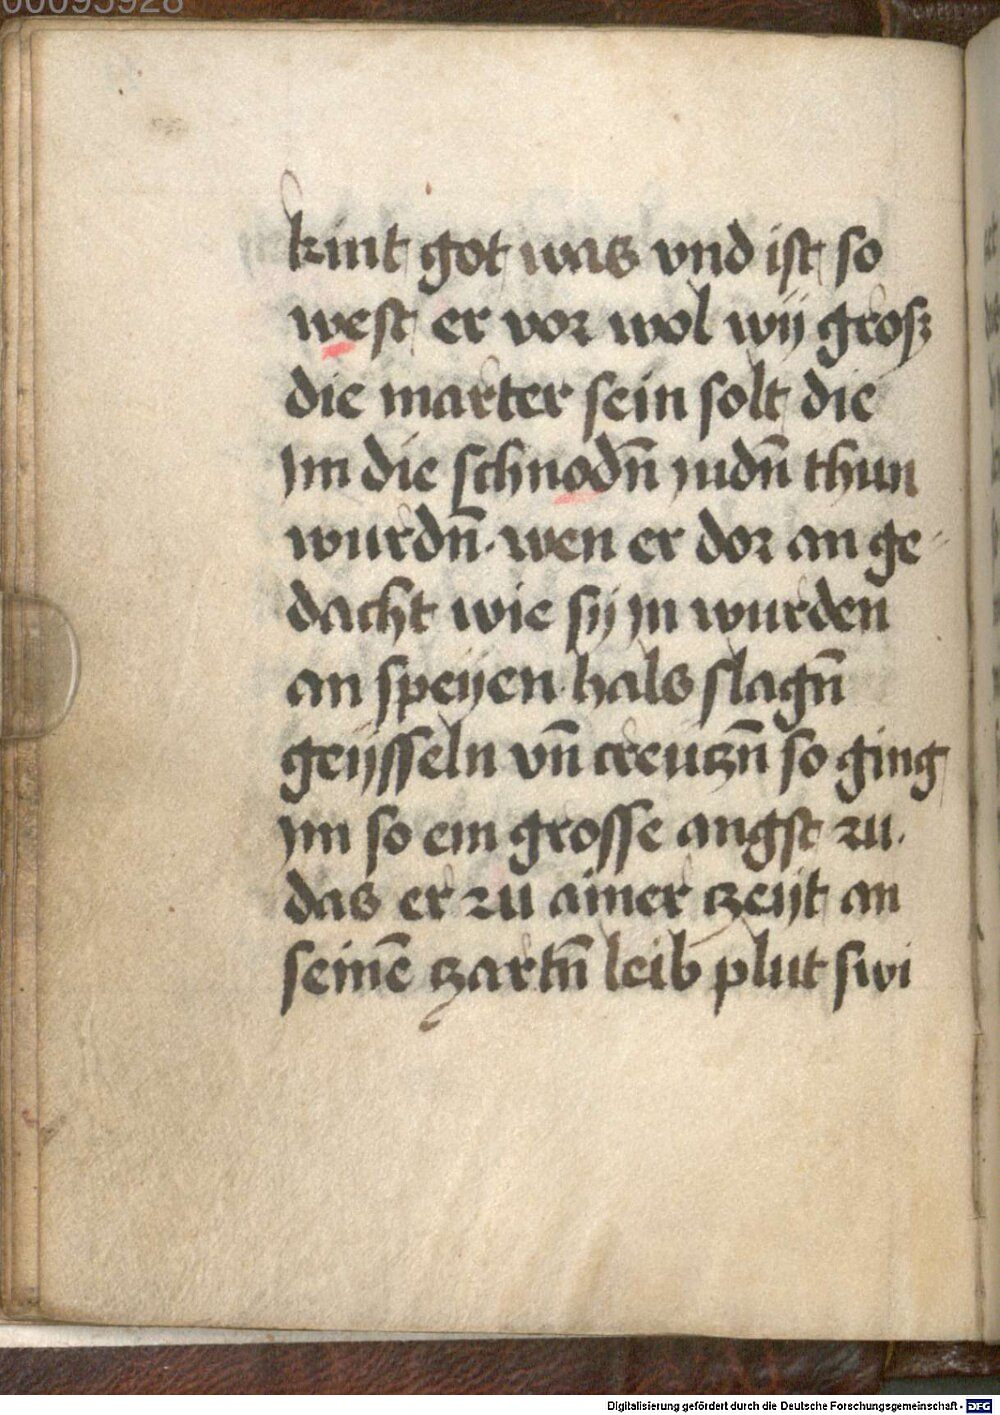 00095928
kint got was vnd ist so
west er vor wol wij grosz
die marter sein solt die
jm die schnodn̄ judn̄ thun
wurdn̄. wen er dor an ge-
dacht wie sij jn wurden
an speijen hals slagn̄
geijsseln vn̄ creuczn̄ so ging
jm so ein grosse angst zu.
das er zu ainer czeijt an
seinē czartn̄ leib plut swi
Digitalisierung gefördert durch die Deutsche Forschungsgemeinschaft - DFG